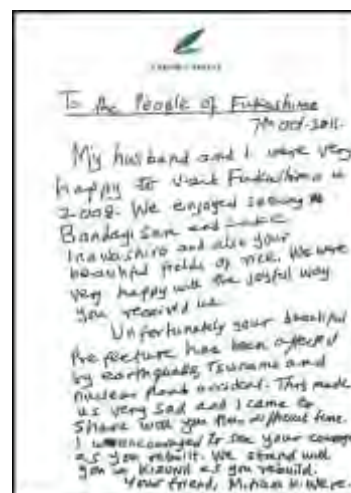 To the People of Fukushima
7th Oct. 2011.
My husband and I were very
happy to visit Fukushima in
2008. We enjoyed seeing
Bandagi San and Lake
Inawashiro and also your
beautiful fields of rice. We were
very happy with the joyful way
you received us.
Unfortunately your beautiful
Prefecture has been affected
by earthquake, Tsunami and
nuclear plant accident. This made
us very sad and I came to
share with you this difficult time.
I encouraged to see your courage
as you rebuilt. We stand with
you as you rebuild.
Your friend, Miriam K. Were.